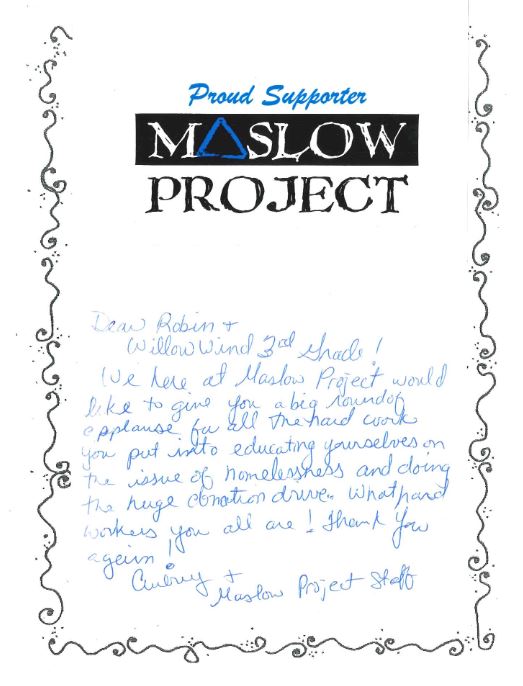 Proud Supporter
MASLOW
PROJECT
Dear Robin +
WillowWind 3rd Grade!
We here at Maslow Project would
like to give you a big round of
applause for all the hard work
you put into educating yourselves on
the issue of homelessness and doing
the huge donation drive. What hard
workers you all are! Thank You
again!
Aubrey +
Maslow Project Staff